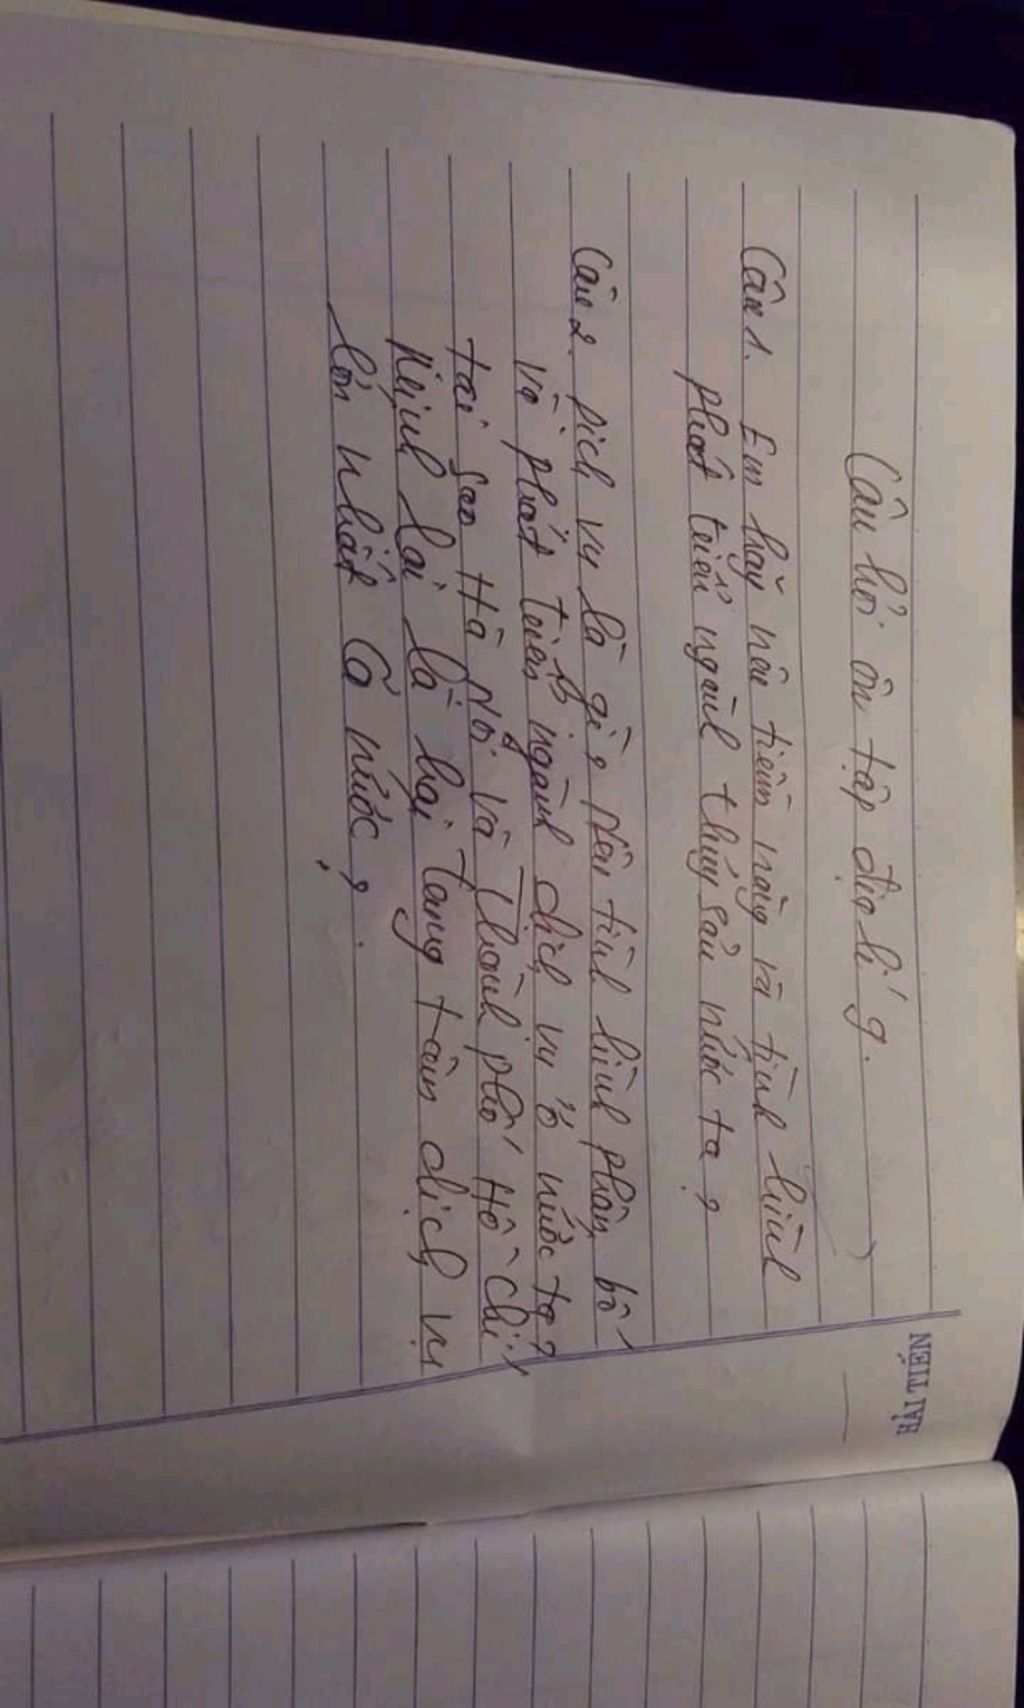 HẢI TIẾN
Câu hỏi ôn tập địa lí 9.
Câu 1. Em hãy nêu tiềm năng và tình hình
phát triển ngành thủy sản nước ta?
Câu 2. Dịch vụ là gì? Nêu tình hình phân bố
và phát triển ngành dịch vụ ở nước ta?
tại sao Hà Nội và Thành phố Hồ Chí
Minh lại là hai trung tâm dịch vụ
lớn nhất cả nước?